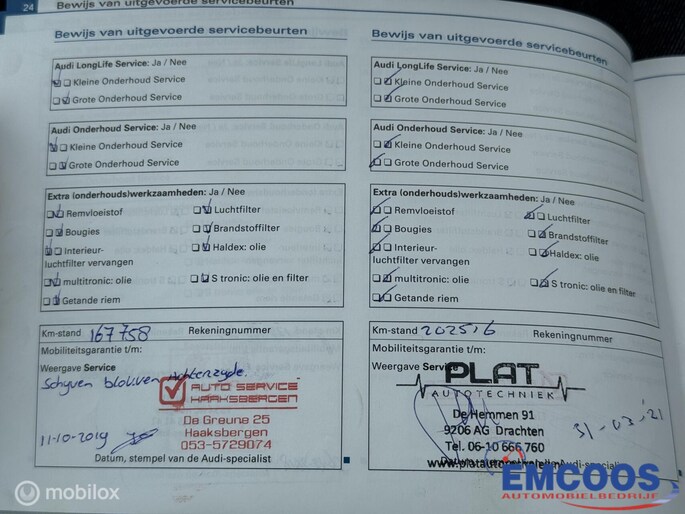 24 Bewijs van uitgevoerde servicebeurten
Bewijs van uitgevoerde servicebeurten
Audi LongLife Service: Ja / Nee
Kleine Onderhoud Service
Grote Onderhoud Service
Audi Onderhoud Service: Ja / Nee
Kleine Onderhoud Service
Grote Onderhoud Service
Extra (onderhouds)werkzaamheden: Ja / Nee
Remvloeistof Luchtfilter
Bougies Brandstoffilter
Interieur- Haldex: olie
luchtfilter vervangen
multitronic: olie S tronic: olie en filter
Getande riem
Km-stand 167758 Rekeningnummer
Mobiliteitsgarantie t/m:
Weergave Service
Schyven blokken Achterzyde.
AUTO SERVICE
HAAKSBERGEN
De Greune 25
11-10-2019 Haaksbergen
053-5729074
Datum, stempel van de Audi-specialist
Bewijs van uitgevoerde servicebeurten
Audi LongLife Service: Ja / Nee
Kleine Onderhoud Service
Grote Onderhoud Service
Audi Onderhoud Service: Ja / Nee
Kleine Onderhoud Service
Grote Onderhoud Service
Extra (onderhouds)werkzaamheden: Ja / Nee
Remvloeistof Luchtfilter
Bougies Brandstoffilter
Interieur- Haldex: olie
luchtfilter vervangen
multitronic: olie S tronic: olie en filter
Getande riem
Km-stand 202516 Rekeningnummer
Mobiliteitsgarantie t/m:
Weergave Service
PLAT
AUTOTECHNIEK
De Hemmen 91
9206 AG Drachten 31-03-'21
Tel. 06-10 666 760
Audi-specialist
EMCOOS
AUTOMOBIELBEDRIJF
mobilox